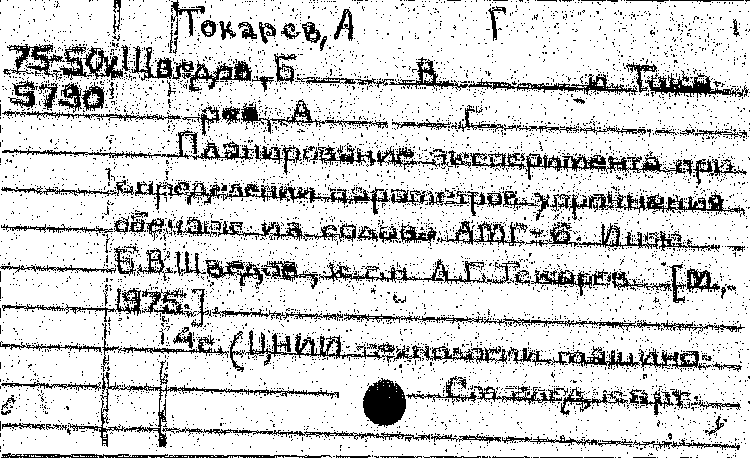 Токарев, А Г
75-50к Шведов, Б В и Тока-
5790 рев, А Г
Планирование эксперимента при
определении параметров упрочнения
обечаек из сплава АМГ-6. Инж.
Б.В.Шведов, к.т.н. А.Г.Токарев. [М.,
1975.]
4с. (ЦНИИ технологии машино-
См. след. карт.